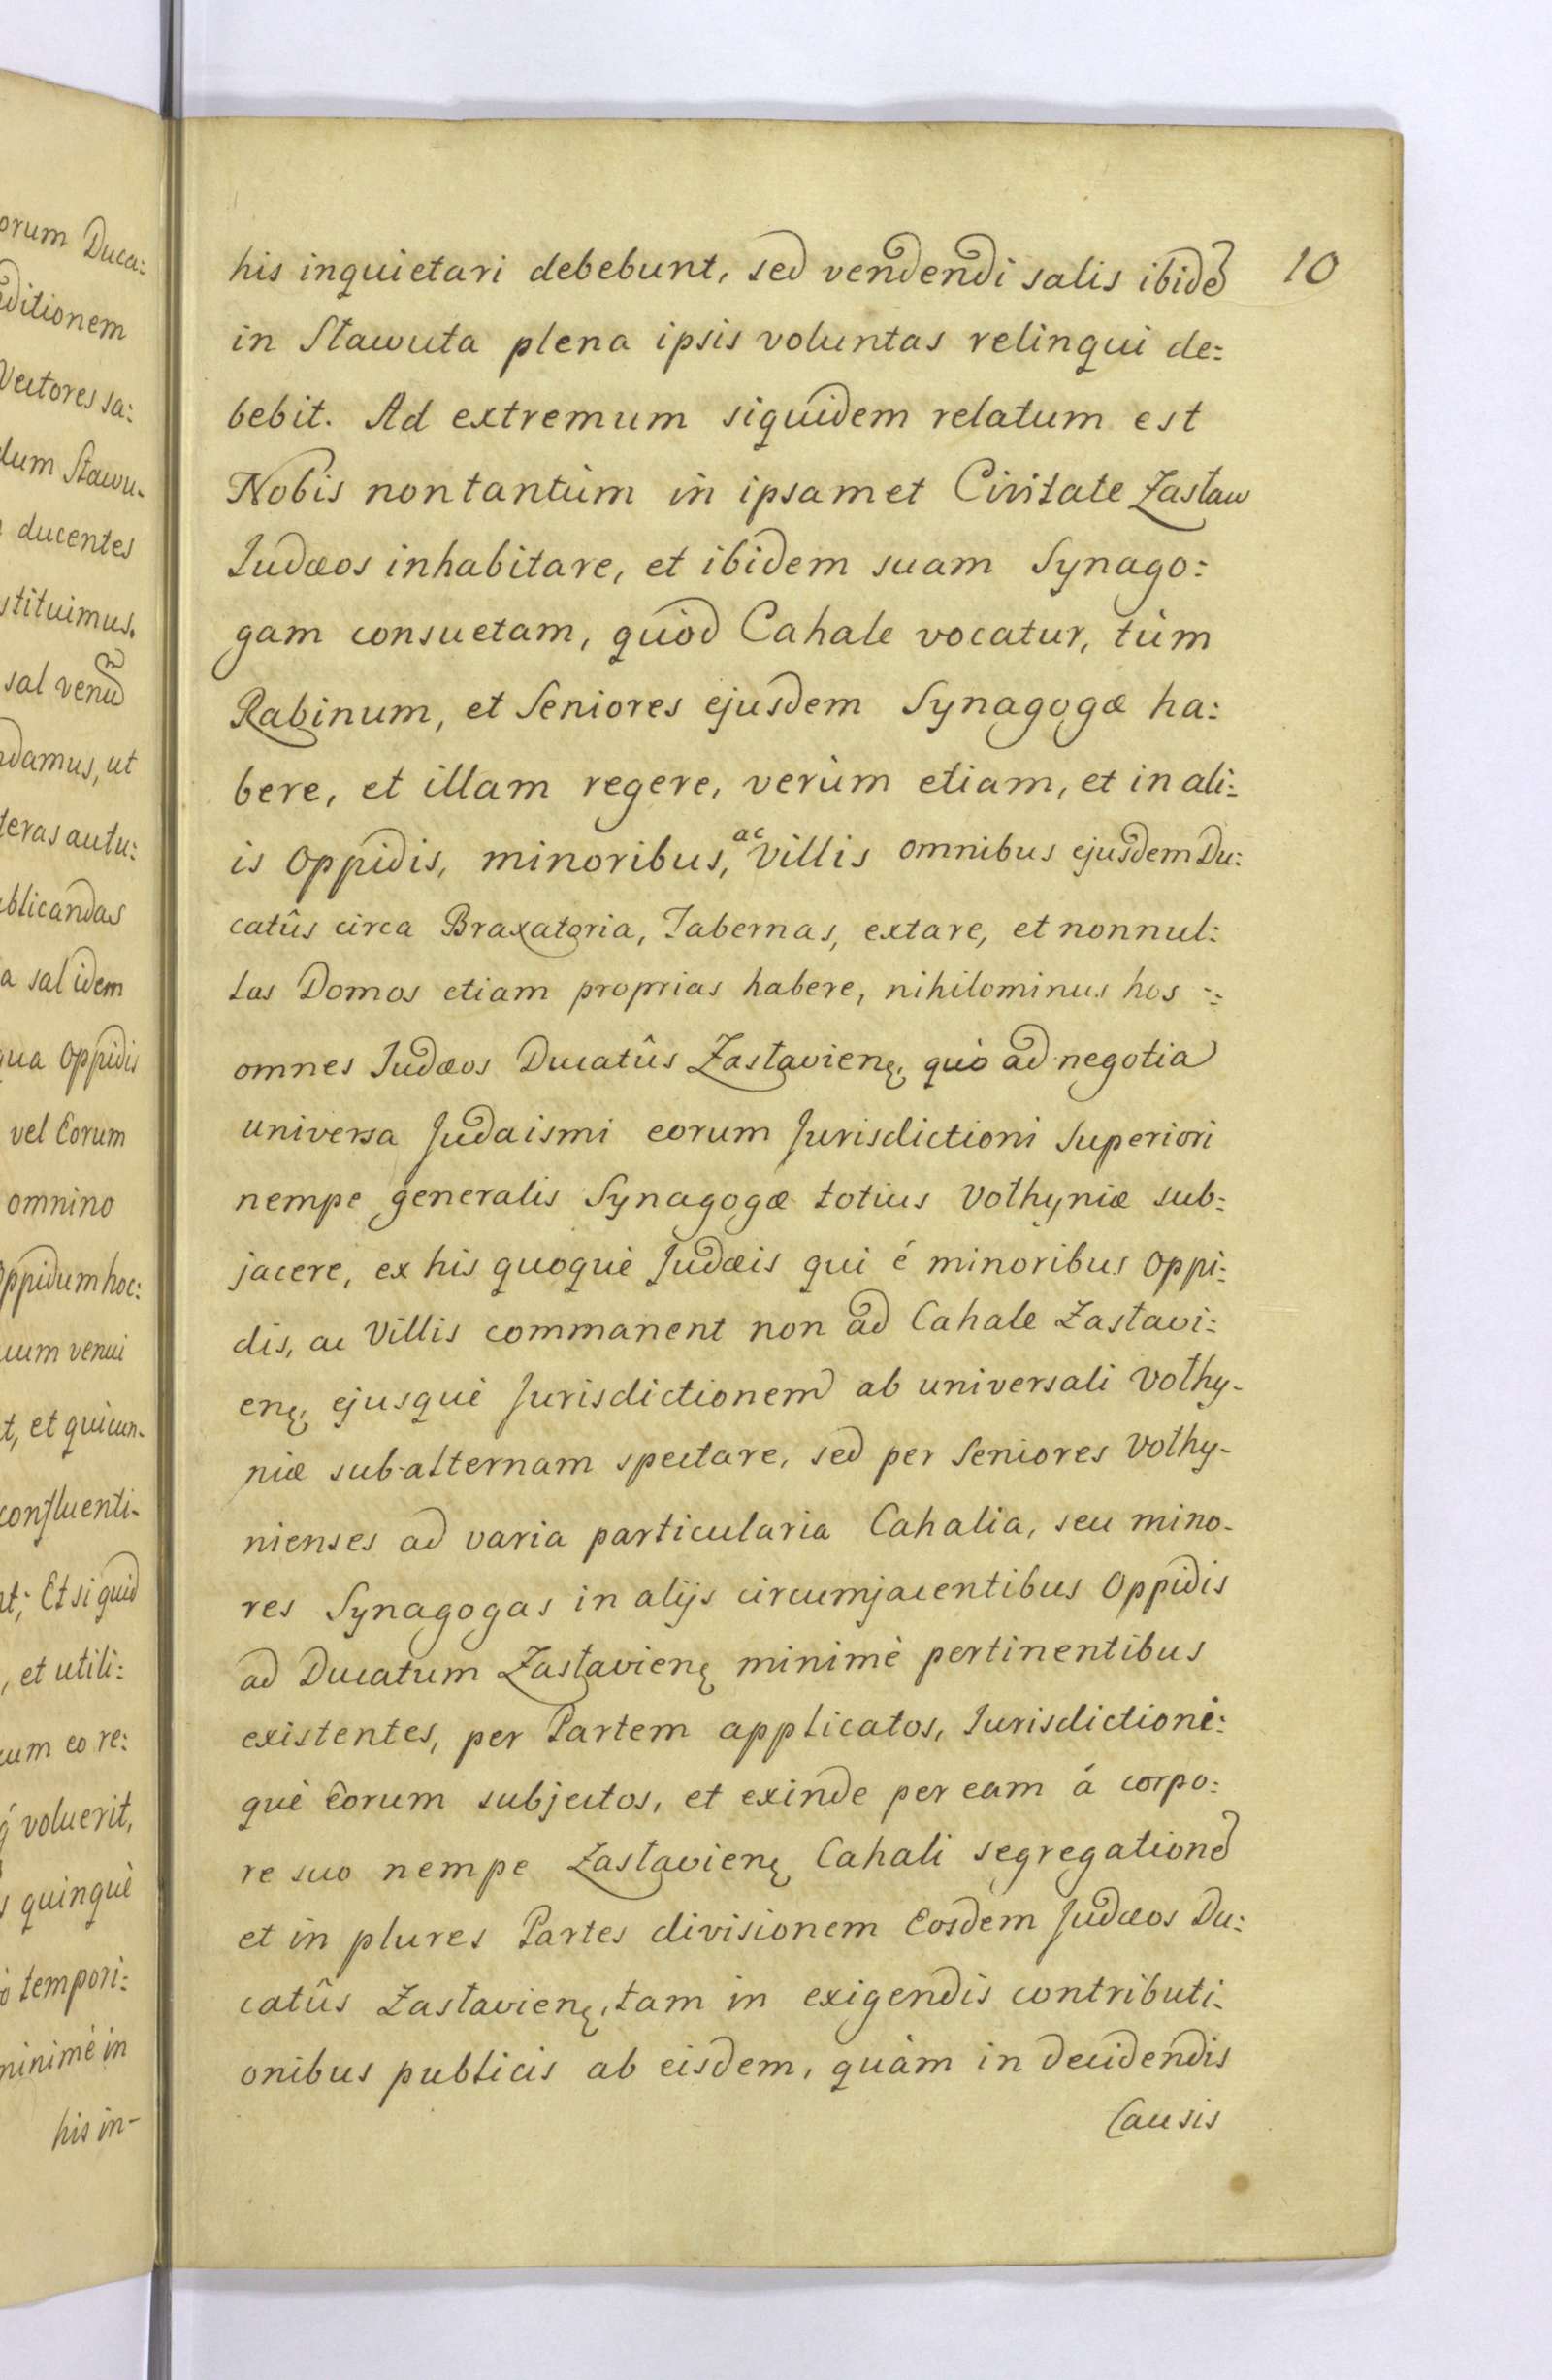 orum Duca:
ditionem
Vectores sa:
dum Stawu-
ducentes
stituimus.
sal venu
ndamus, ut
teras autu:
blicandas
a sal idem
qua Oppidis
vel Eorum
omnino
Oppidum hoc:
uum venui
t, et quicun-
confluenti-
nt; Et si quid
, et utili:
cum eo re:
voluerit,
s quinquè
ò tempori:
minimè in
his in-
10
his inquietari debebunt, sed vendendi salis ibidē
in Sławuta plena ipsis voluntas relinqui de:
bebit. Ad extremum siquidem relatum est
Nobis non tantùm in ipsamet Civitate Zasław
Judæos inhabitare, et ibidem suam Synago:
gam consuetam, quòd Cahale vocatur, tùm
Rabinum, et Seniores ejusdem Synagogæ ha:
bere, et illam regere, verùm etiam, et in ali:
is Oppidis, minoribus, ac Villis omnibus ejusdem Du:
catûs circa Braxatoria, Tabernas, extare, et nonnul:
las Domos etiam proprias habere, nihilominus hos
omnes Judæos Ducatûs Zasłavienę, quò ad negotia
universa Judaismi eorum Jurisdictioni Superiori
nempe generalis Synagogæ totius Vołhyniæ sub:
jacere, ex his quoquè Judæis qui é minoribus Oppi:
dis, ac Villis commanent non ad Cahale Zasłavi:
enę, ejusquè Jurisdictionem ab universali Vołhy-
niæ sub-alternam spectare, sed per Seniores Vołhy-
nienses ad varia particularia Cahalia, seu mino-
res Synagogas in alijs circumjacentibus Oppidis
ad Ducatum Zasłavienę minimè pertinentibus
existentes, per Partem applicatos, Jurisdictioni:
què Eorum subjectos, et exinde per eam á corpo:
re suo nempe Zasłavienę Cahali segregationē
et in plures Partes divisionem Eosdem Judæos Du:
catûs Zasłavienę, tam in exigendis contributi-
onibus publicis ab eisdem, quàm in decidendis
Causis